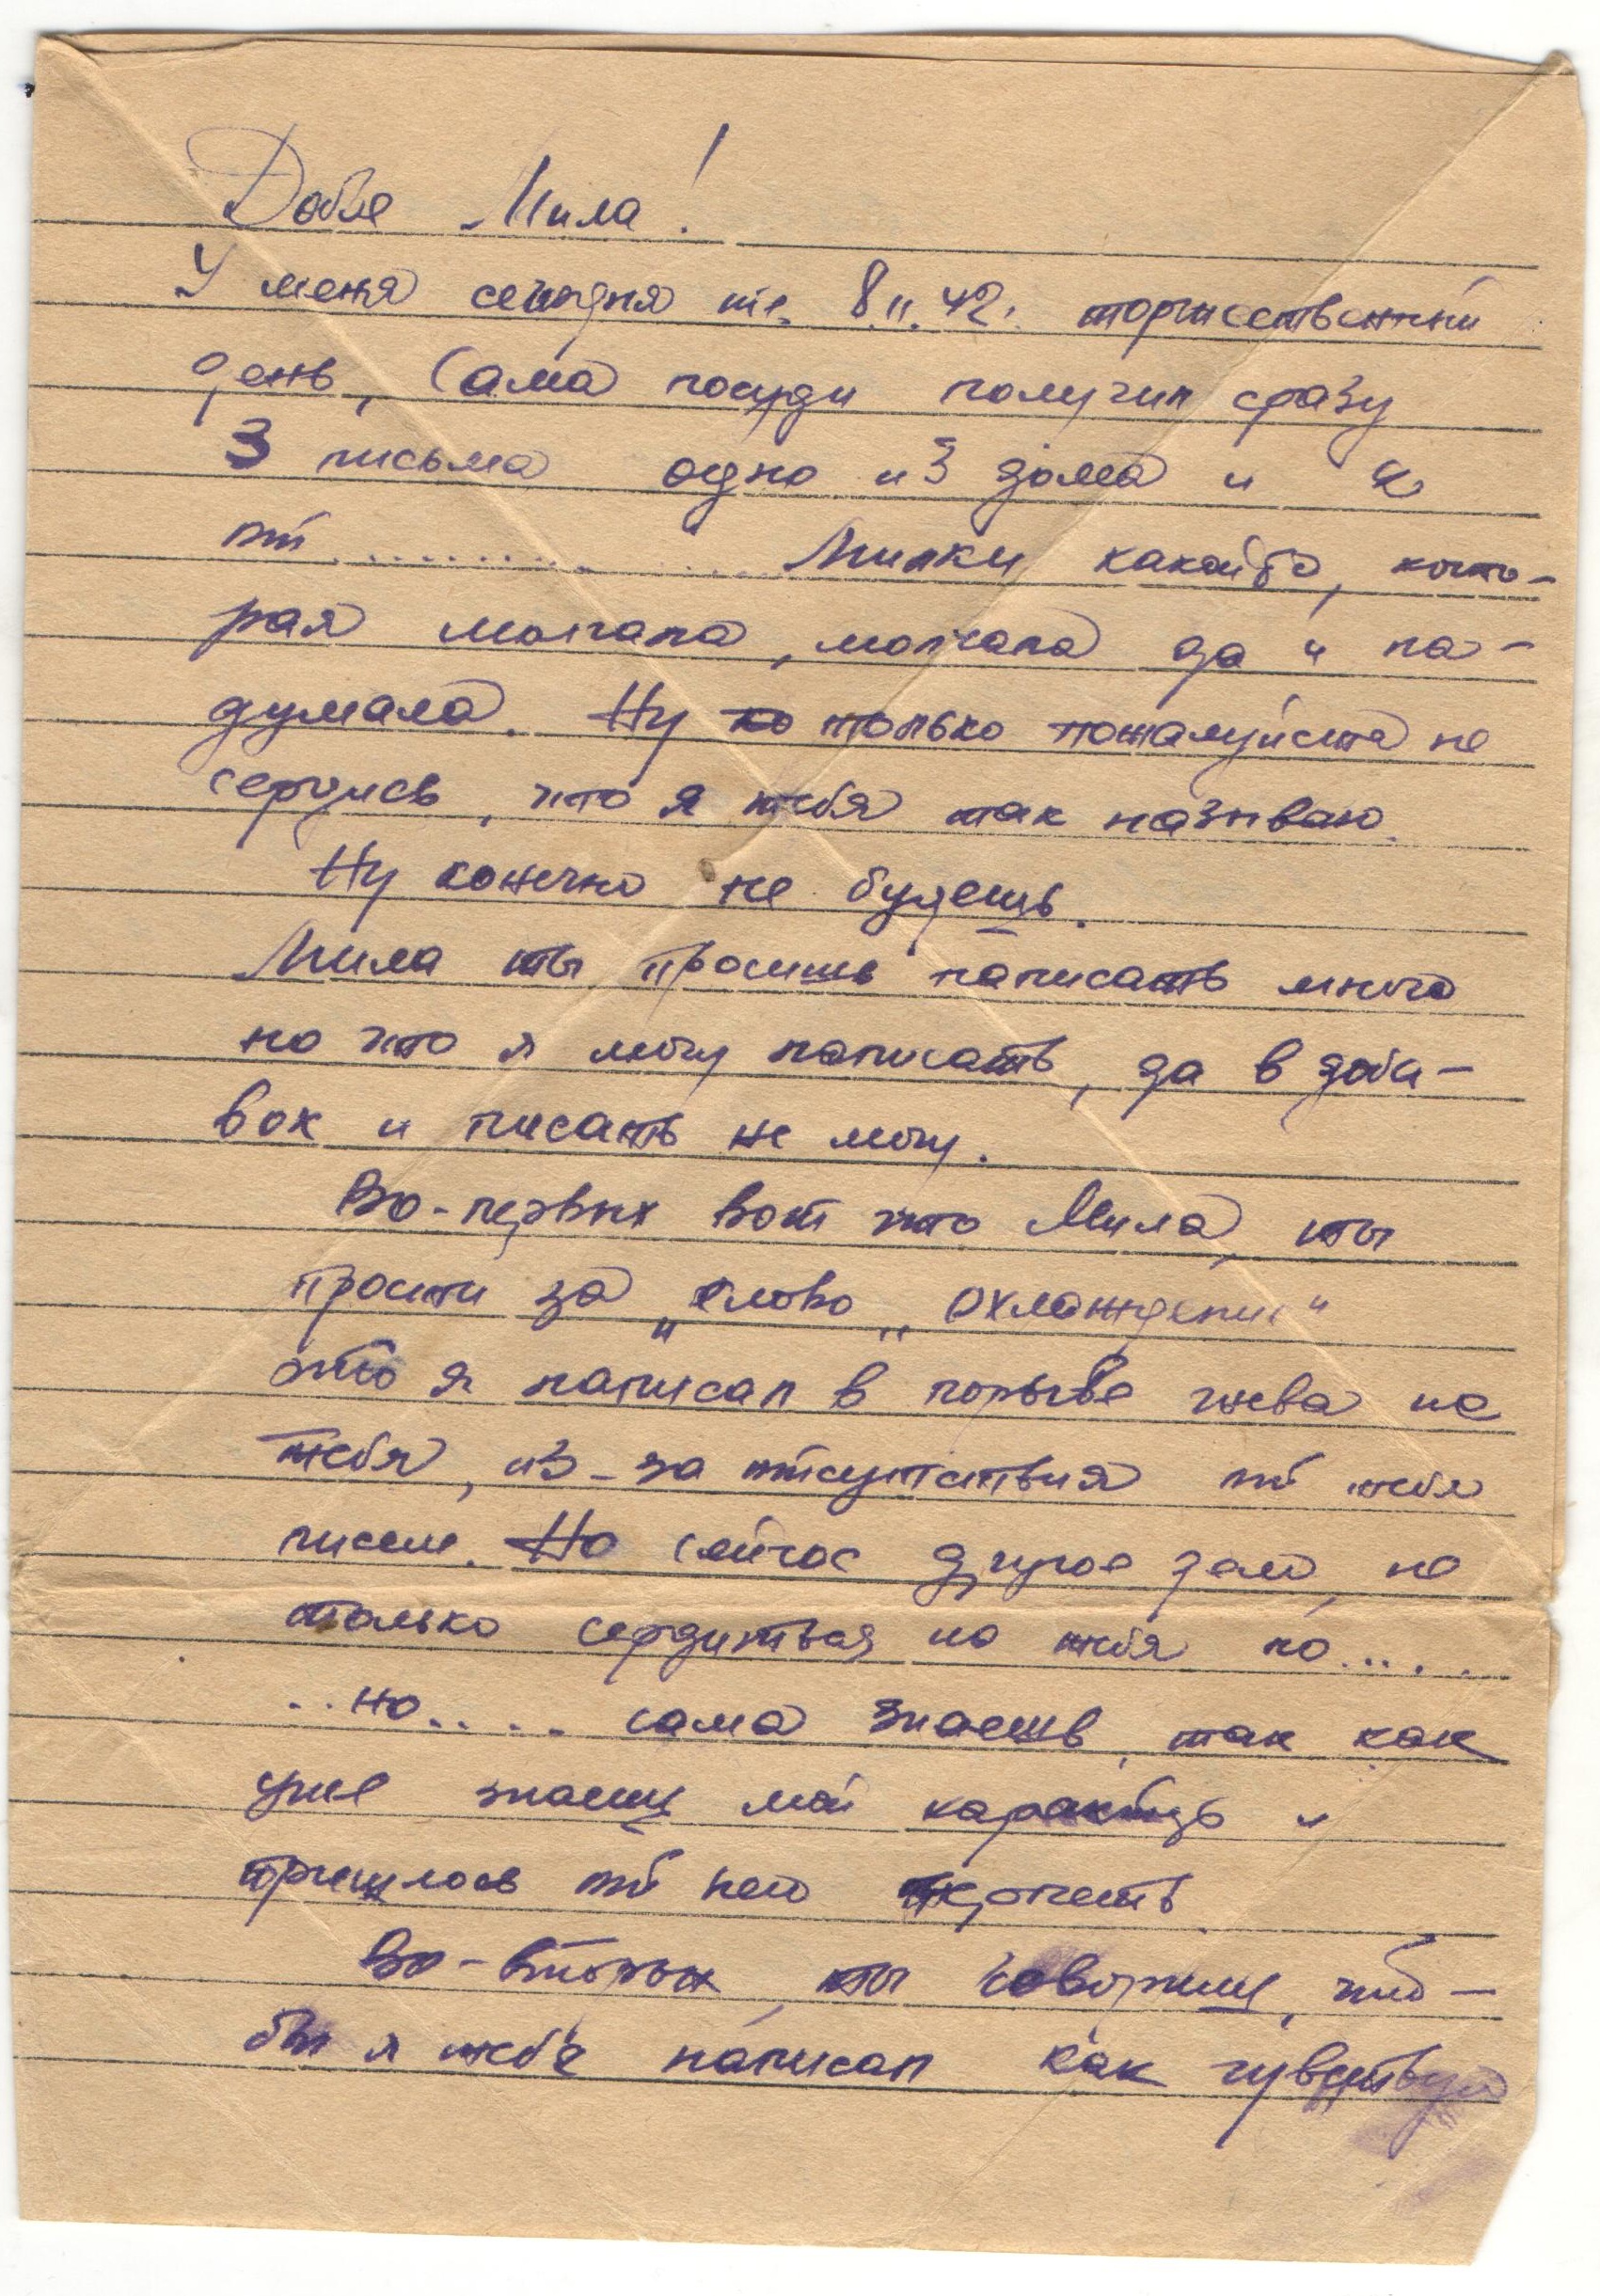 Добле Мила!
У меня сегодня т.е. 8.II.42г. торжественный
день, Сама посуди получил сразу
3 письма одно из дома и 2
от .............. Милки какойто, кото-
рая молчала, молчала да и на-
думала. Ну только пожалуйста не
сердись, что я тебя так называю.
Ну конечно не будешь.
Мила ты просишь написать много
но что я могу написать, да в доба-
вок и писать не могу.
Во-первых вот что Мила, ты
прости за „слово „охлаждение"
это я написал в порыве гнева на
тебя, из-за отсутствия от тебя
писем. Но сейчас другое дело, не
только сердиться на тебя но.....
..но..... сама знаешь, так как
уже знаешь мой характер и
пришлось от него терпеть.
Во-вторых, ты говоришь, что-
бы я тебе написал как чувствую